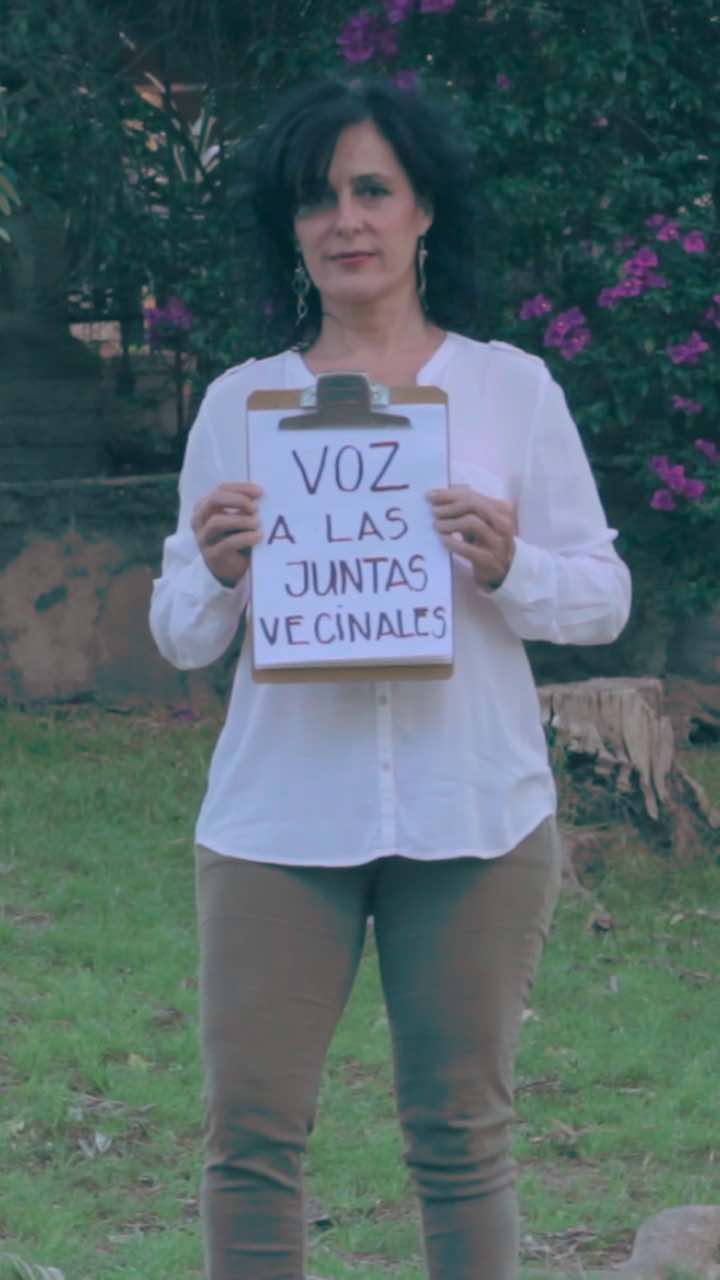 VOZ
A LAS
JUNTAS
VECINALES